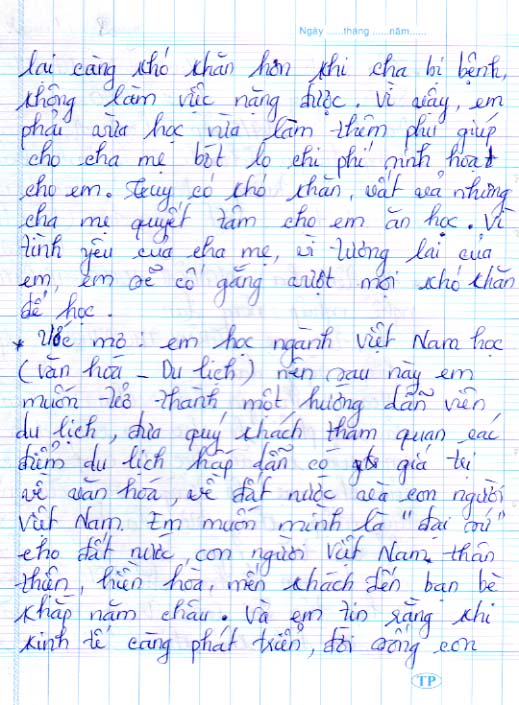 Ngày ......tháng ......năm......
lại càng khó khăn hơn khi cha bị bệnh,
không làm việc nặng được. Vì vậy, em
phải vừa học vừa làm thêm phụ giúp
cho cha mẹ bớt lo chi phí sinh hoạt
cho em. Tuy có khó khăn, vất vả nhưng
cha mẹ quyết tâm cho em ăn học. Vì
tình yêu của cha mẹ, vì tương lai của
em, em sẽ cố gắng vượt mọi khó khăn
để học.
* Ước mơ: em học ngành Việt Nam học
(Văn hoá - Du lịch) nên sau này em
muốn trở thành một hướng dẫn viên
du lịch, đưa quý khách tham quan các
điểm du lịch hấp dẫn có giá trị
về văn hóa, về đất nước và con người
Việt Nam. Em muốn mình là "đại sứ"
cho đất nước, con người Việt Nam thân
thiện, hiền hòa, mến khách đến bạn bè
khắp năm châu. Và em tin rằng khi
kinh tế càng phát triển, đời sống con
TP